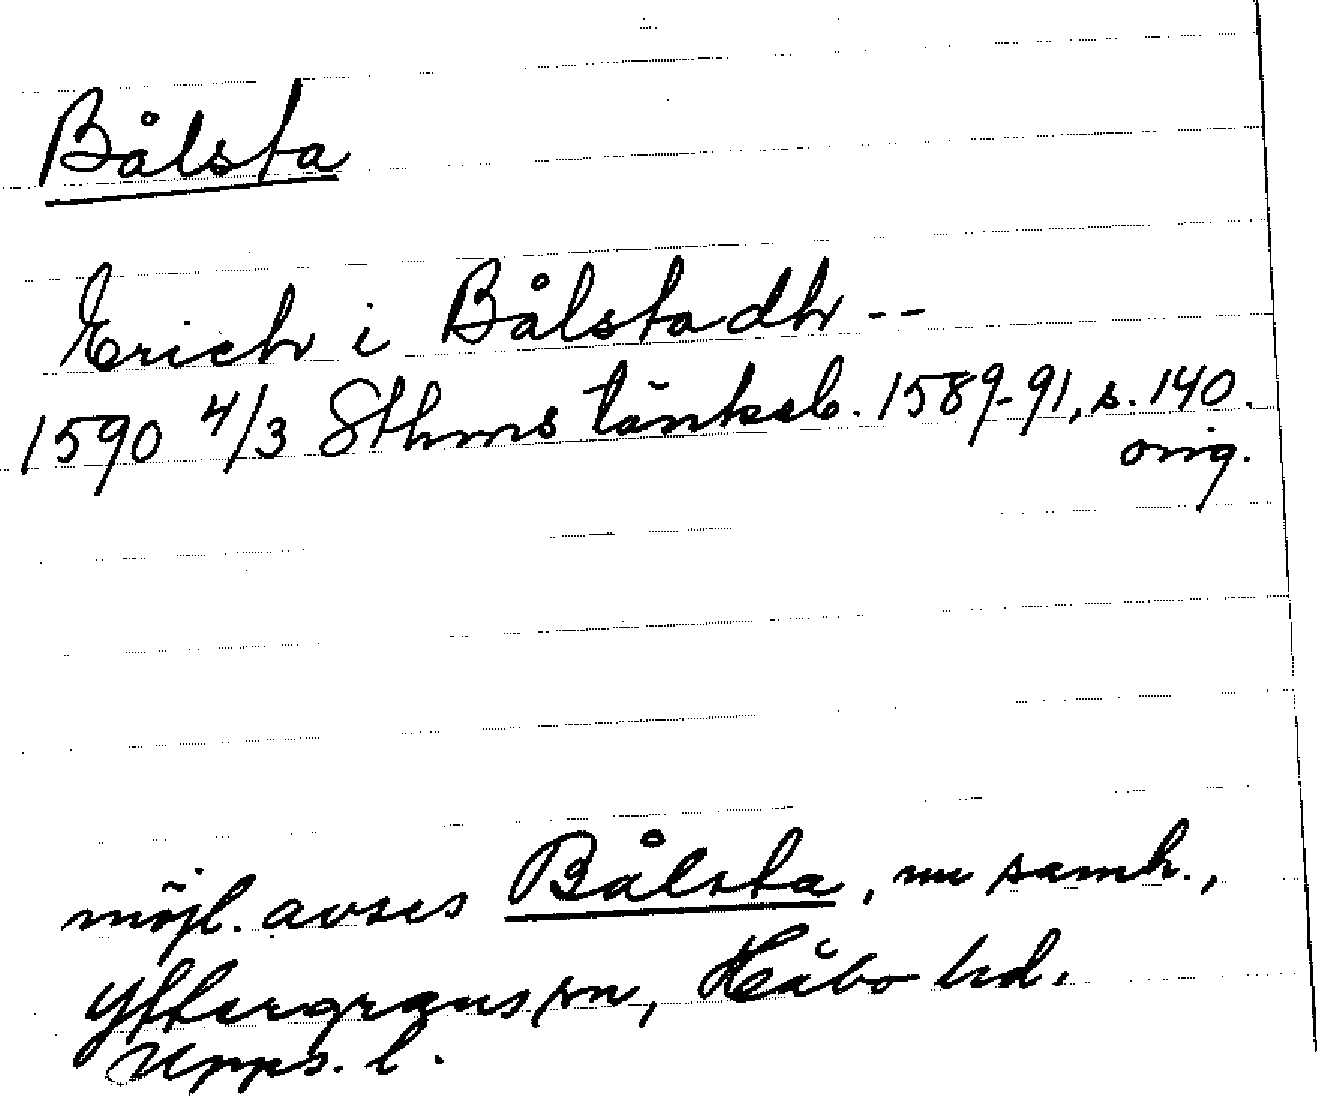 Bålsta
Erich i Bålstadh --
1590 4/3 Sthms tänkeb. 1589-91, s. 140.
orig.
möjl. avses Bålsta, nu samh.,
Yttergrans sn, Håbo hd.
Upps. l.